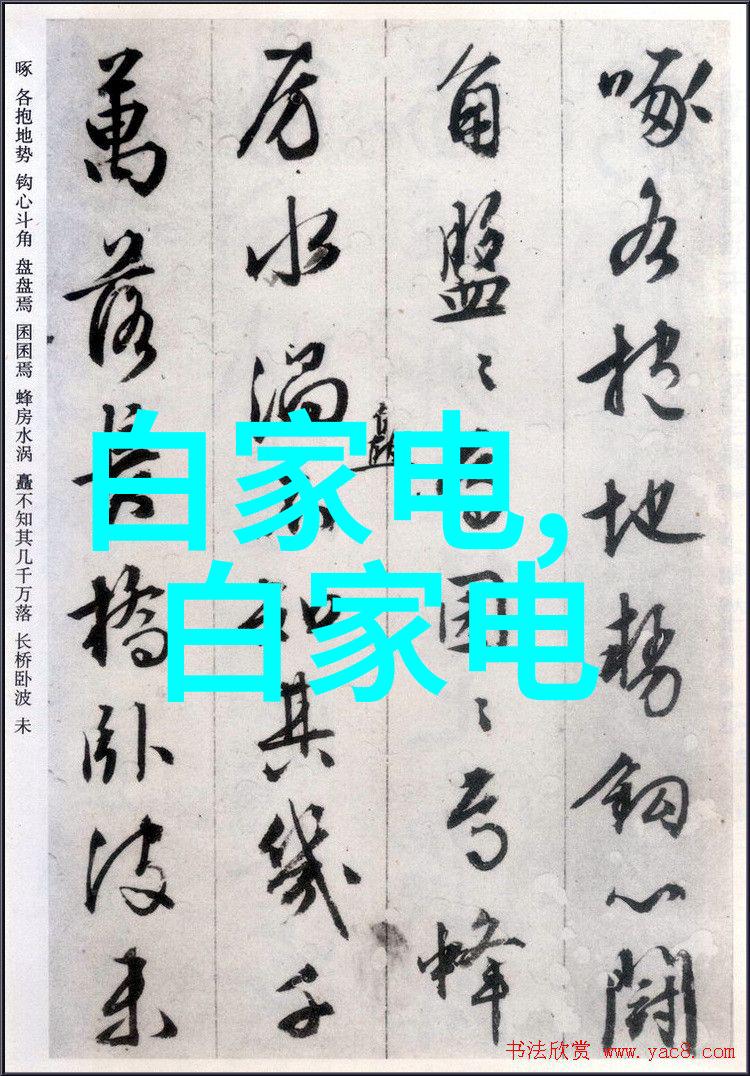 啄各抱地势钩心闘
角盘盘焉困〻焉蜂
房水涡矗不知其几千
萬落长橋卧波未
啄 各抱地势 钩心斗角 盘盘焉 囷囷焉 蜂房水涡 矗不知其几千万落 长桥卧波 未
白家电,
白家电
书法欣赏 www.yac8.com